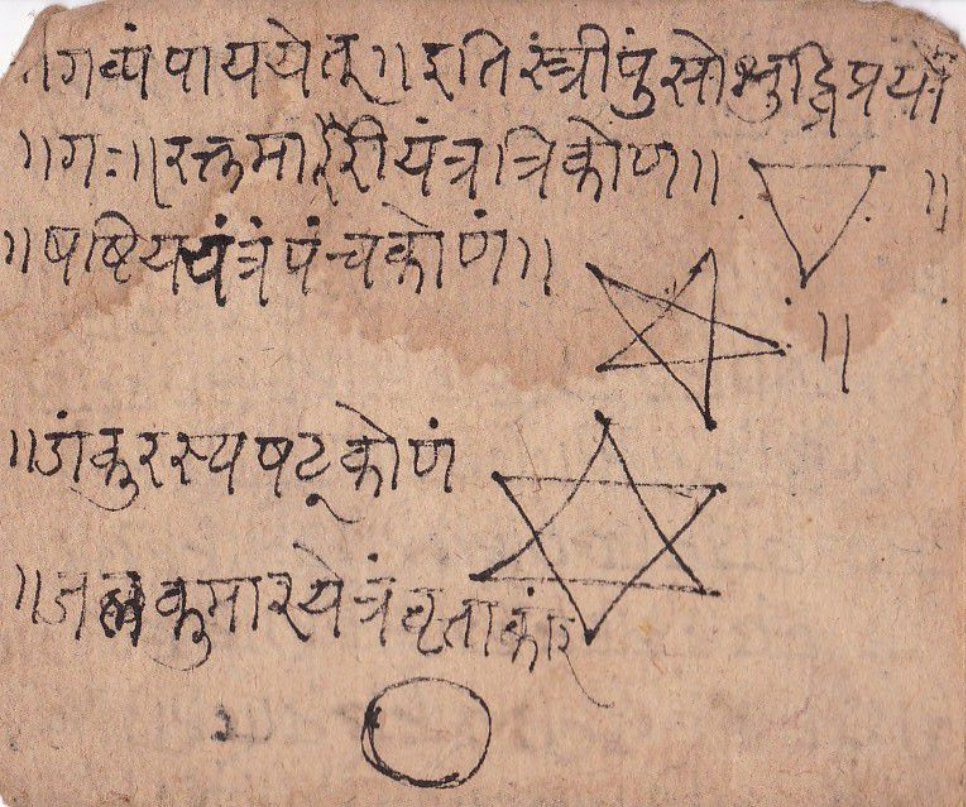 तगव्यं पाययेत्॥ इति स्त्रीपुंसोश्शुद्धिप्रयो
॥गः॥ रक्तमारैरीयंत्र त्रिकोण॥ ॥
॥षष्टिययंत्रं पंचकोणं॥ ॥
॥अंकुरस्य षट्कोणं
॥जलकुमारयेत्रं वृत्ताकारं
२